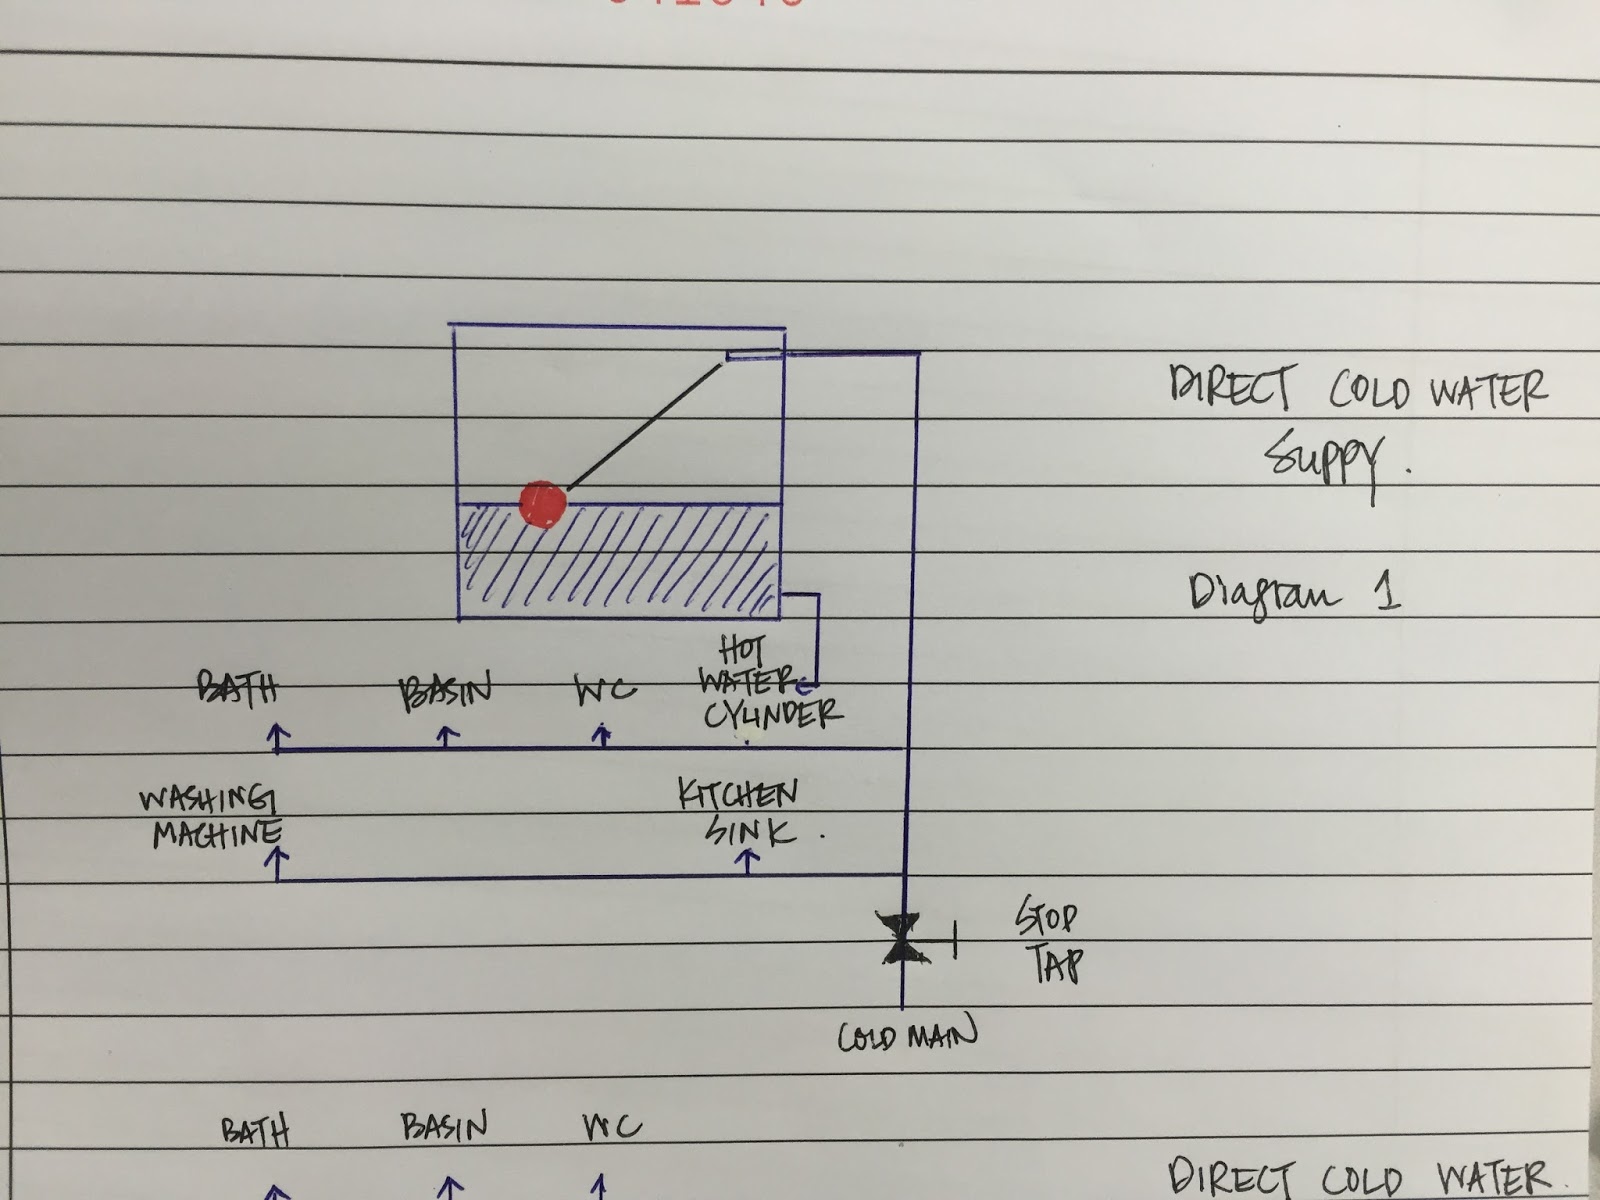 DIRECT COLD WATER
Suppy.
Diagram 1
HOT
WATER
CYLINDER
BATH BASIN WC
WASHING
MACHINE
KITCHEN
SINK.
STOP
TAP
COLD MAIN
BATH BASIN WC
DIRECT COLD WATER.